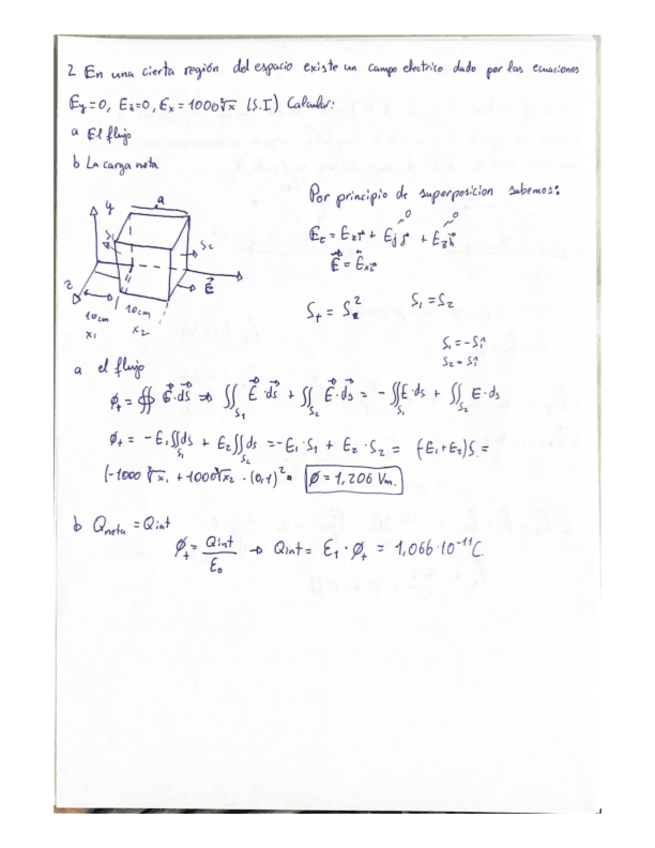 2 En una cierta región del espacio existe un campo electrico dado por las ecuaciones
Ey=0, Ez=0, Ex=1000∛x (S.I) Calcular:
a El flujo
b La carga neta
Por principio de superposicion sabemos:
y a
S2
E
z
10cm 10cm
x1 x2
S1 = S2
S1 = -Sî
S2 = Sî
a el flujo
ϕ+ = ∯ E·ds ⇒ ∬S1 E·ds + ∬S2 E·ds = - ∬S1 E·ds + ∬S2 E·ds
ϕ+ = -E1∬S1 ds + E2∬S2 ds = -E1·S1 + E2·S2 = (-E1+E2)S =
(-1000 ∛x1 + 1000∛x2 · (0,1)² = ϕ=1,206 Vm.
b Qneta = Qint
ϕ+ = Qint/E0 → Qint = E1·ϕ+ = 1,066·10⁻¹¹C.